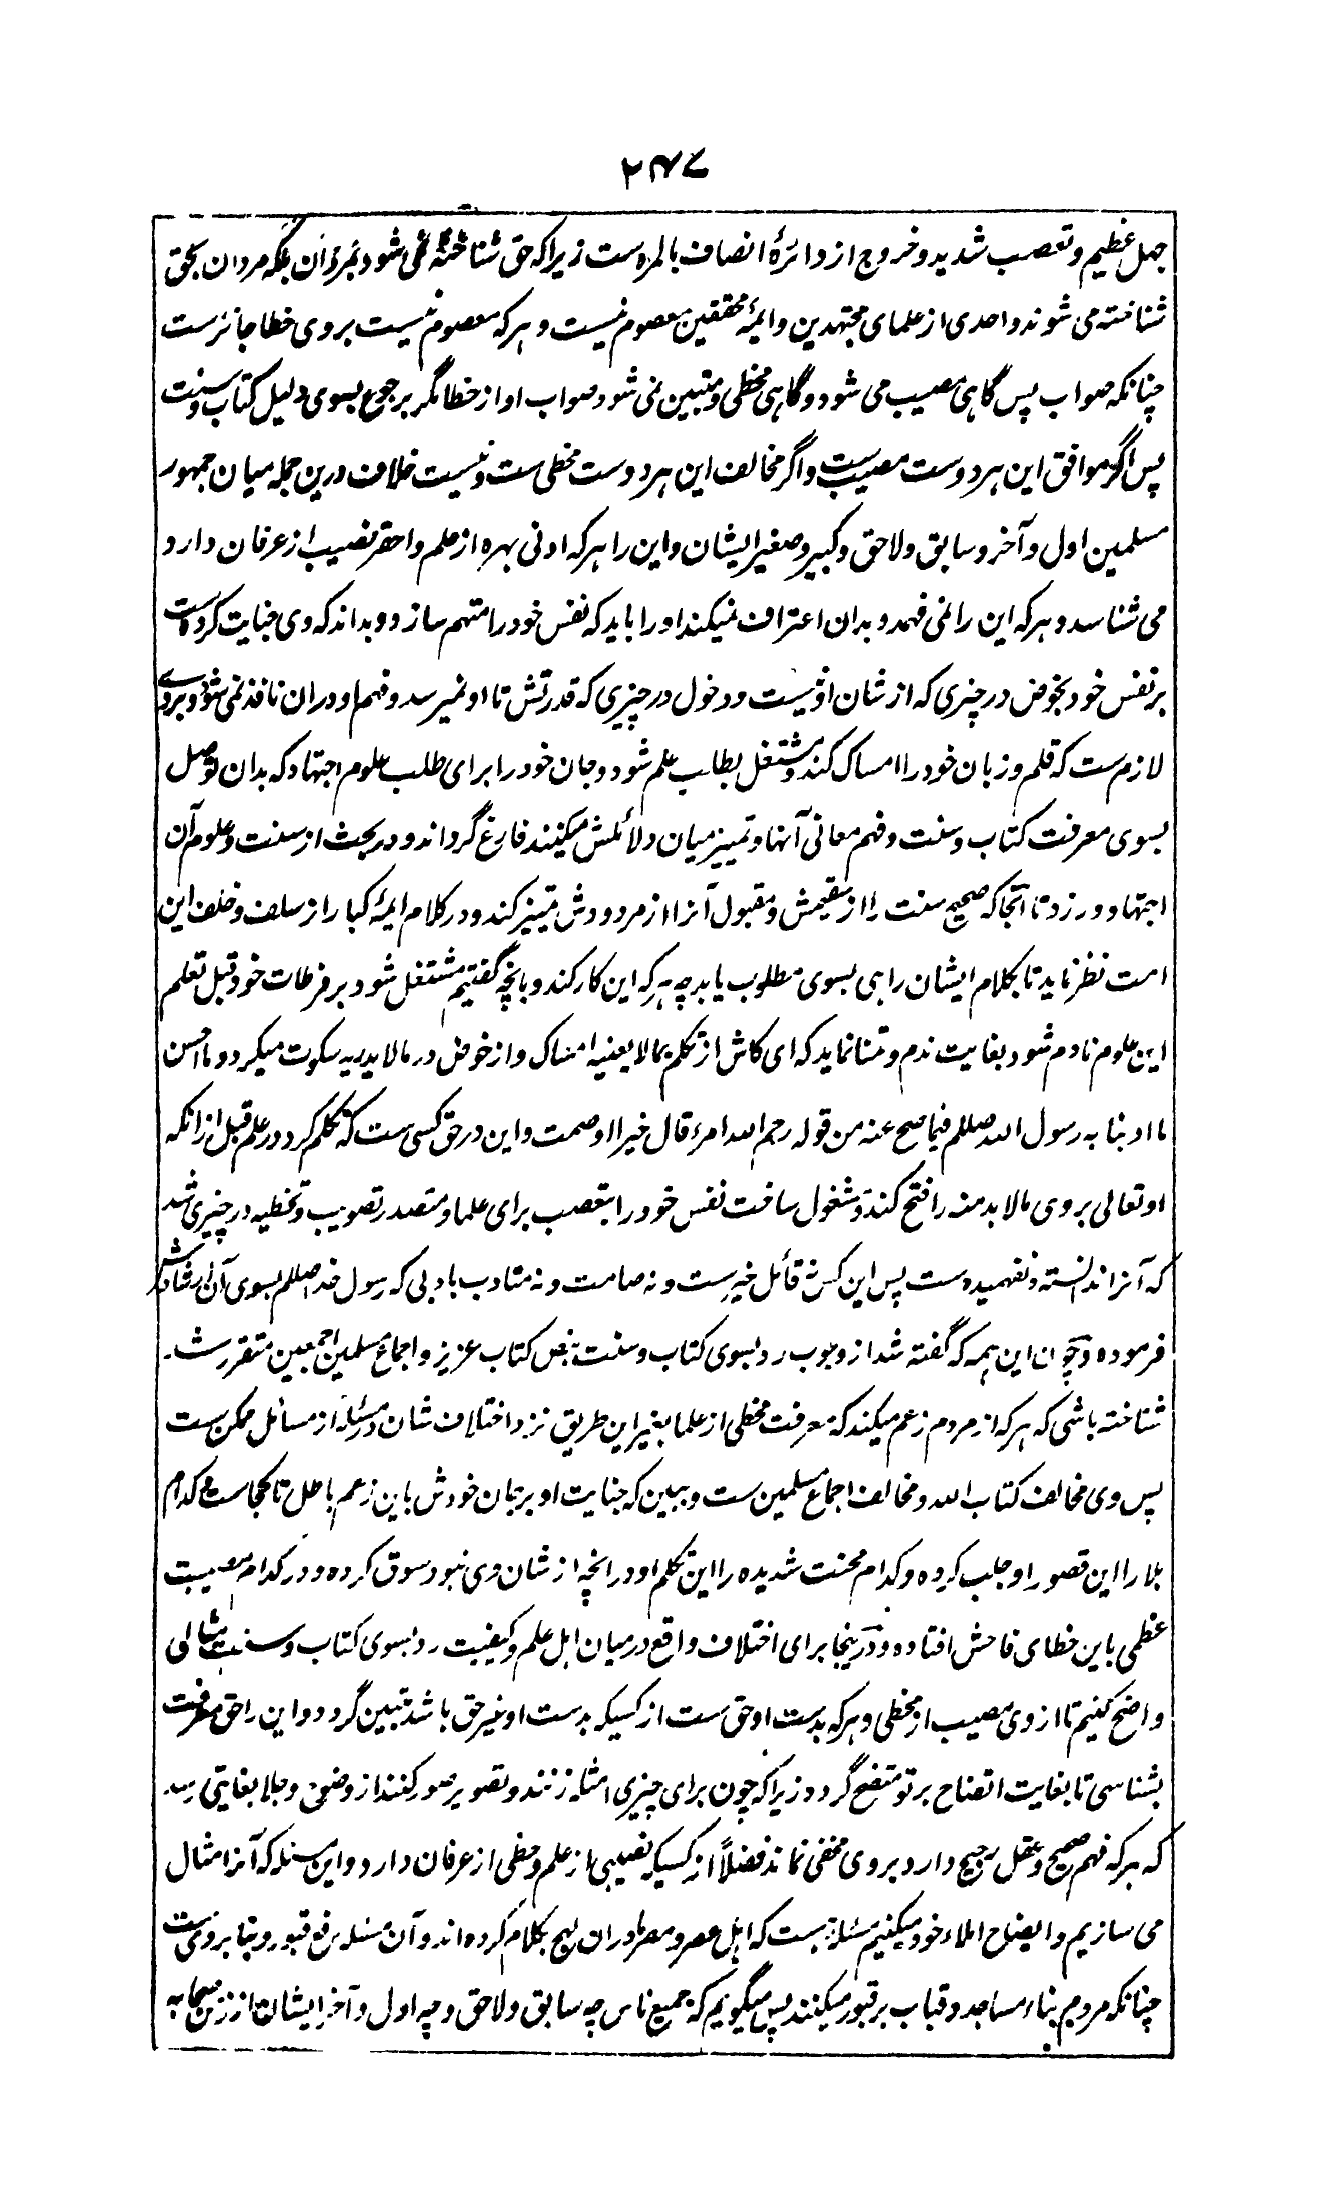 ۲۴۷
جهل عظیم و تعصب شدید و خروج از دائرهٔ انصاف بالمره ست زیرا که حق شناخته نمی شود بمردان بلکه مردان بحق
شناخته می شوند و احدی از علمای مجتهدین و ایمهٔ محققین معصوم نیست و هر که معصوم نیست بروی خطا جائزست
چنانکه صواب پس گاهی مصیب می شود و گاهی مخطی و متبین نمی شود صواب او از خطا مگر برجوع بسوی دلیل کتاب و سنت
پس اگر موافق این هر دوست مصیب ست و اگر مخالف این هر دوست مخطی ست و نیست خلاف درین جمله میان جمهور
مسلمین اول و آخر و سابق و لاحق و کبیر و صغیر ایشان و این را هر که ادنی بهره از علم و احقر نصیب از عرفان دارد
می شناسد و هر که این را نمی فهمد و بدان اعتراف نمیکند او را باید که نفس خود را متهم سازد و بداند که وی جنایت کرده است
بر نفس خود بخوض در چیزی که از شان او نیست و دخول در چیزی که قدرتش تا او نمیرسد و فهم او دران نافذ نمی شود و بروے
لازم ست که قلم و زبان خود را امساک کند و مشتغل بطلب علم شود و جان خود را برای طلب علوم اجتهاد که بدان توصل
بسوی معرفت کتاب و سنت و فهم معانی آنها و تمییز میان دلائلش میکنند فارغ گرداند و در بحث از سنت و علوم آن
اجتهاد ورزد تا آنجا که صحیح سنت را از سقیمش و مقبول آنرا از مردودش تمییز کند و در کلام ایمهٔ کبار از سلف و خلف این
امت نظر نماید تا بکلام ایشان راهی بسوی مطلوب یابد چه هر که این کار کند و بانچه گفتیم مشتغل شود بر فرطات خود قبل تعلم
این علوم نادم شود بغایت ندم و تمنا نماید که ای کاش از تکلم بمالا یعنیه امساک و از خوض در مالا یدریه سکوت میکرد و ما احسن
ما ادبنا به رسول الله صللم فیما صح عنه من قوله رحم الله امرء قال خیرا او صمت و این در حق کسی ست که تکلم کرد در علم قبل ازانکه
او تعالی بروی مالا بد منه را فتح کند و مشغول ساخت نفس خود را بتعصب برای علما و متصدر تصویب و تخطیه در چیزی شد
که آنرا ندانسته و نفهمیده ست پس این کس نه قائل خیرست و نه صامت و نه متادب بادبی که رسول خدا صللم بسوی آن ارشادش
فرموده و چون این همه که گفته شد از وجوب رد بسوی کتاب و سنت بنص کتاب عزیز و اجماع مسلمین اجمعین متقررست
شناخته باشی که هر که از مردم زعم میکند که معرفت مخطی از علما بغیر این طریق نزد اختلاف شان در مسئلهٔ از مسائل ممکن ست
پس وی مخالف کتاب الله و مخالف اجماع مسلمین ست و ببین که جنایت او بر جان خودش باین زعم باطل تا کجاست و کدام
بلا را این قصور او جلب کرده و کدام محنت شدیده را این تکلم او درانچه از شان وی نبود سوق کرده و در کدام مصیبت
عظمی باین خطای فاحش افتاده و درینجا برای اختلاف واقع درمیان اهل علم و کیفیت رد بسوی کتاب و سنت مثالی
واضح کنیم تا از وی مصیب از مخطی و هر که بدست او حق ست از کسیکه بدست او غیر حق باشد متبین گردد و این را حق معرفت
بشناسی تا بغایت اتضاح بر تو متضح گردد زیرا که چون برای چیزی امثله زنند و تصویر صور کنند از وضوح و جلا بغایتی رسد
که هر که فهم صحیح و عقل رجیح دارد بروی مخفی نماند فضلاً از کسیکه نصیبی از علم و حظی از عرفان دارد و این مسئله که آنرا مثال
می سازیم و ایضاح املاء خود میکنیم مسئلهٔ ست که اهل عصر و مصر ما دران لهج بکلام کرده اند و آن مسئله رفع قبور و بنا بروی ست
چنانکه مردم بناء مساجد و قباب بر قبور میکنند پس میگویم که جمیع ناس چه سابق و لاحق و چه اول و آخر ایشان از زمن صحابه